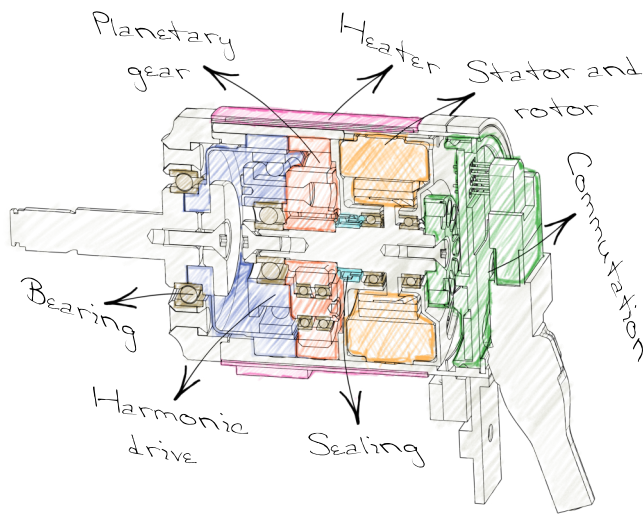 Planetary
gear
Heater
Stator and
rotor
Commutation
Bearing
Harmonic
drive
Sealing